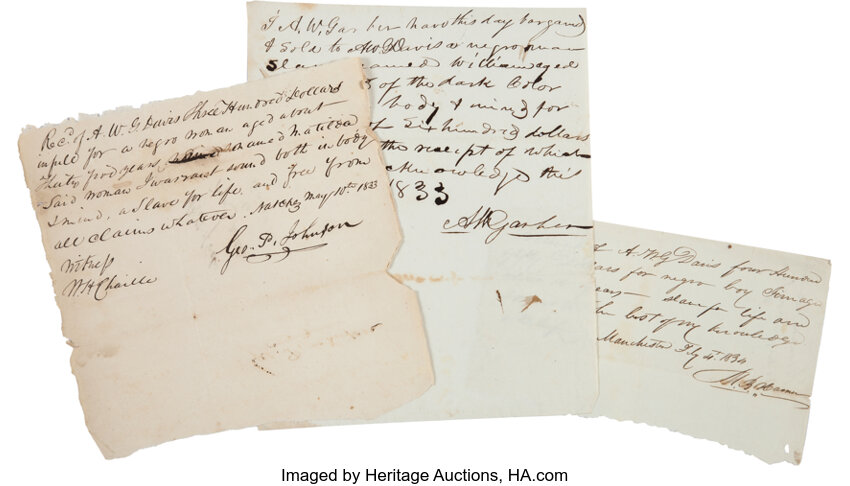 Rec'd. of A. W. G. Davis Three Hundred Dollars
in full for a negro woman aged about
Thirty four years named Matilda
Said woman I warrant sound both in body
& mind, a Slave for life, and free from
all claims whatever. Natchez May 10th 1833
Geo. P. Johnson
Witness
W H Chaille
I A. W. Garber have this day bargained
& Sold to Davis a negro man
Slave named William aged
of the dark Color
body & mind for
of Six hundred dollars
the receipt of which
acknowledge this
1833
AW Garber
A. W. G. Davis four Hundred
for negro boy
slave for life and
best of my knowledge
Manchester 4th 1834
Imaged by Heritage Auctions, HA.com